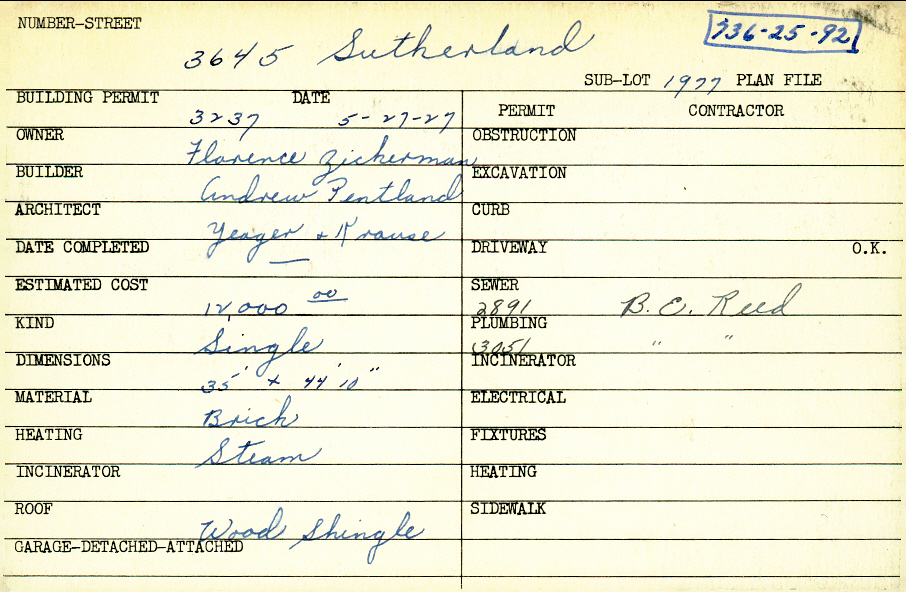 NUMBER-STREET
3645 Sutherland
736-25-92
SUB-LOT 1977 PLAN FILE
BUILDING PERMIT DATE
3237 5-27-27
PERMIT CONTRACTOR
OWNER
Florence Zickerman
BUILDER
Andrew Pentland
ARCHITECT
Yeager + Krause
DATE COMPLETED
—
ESTIMATED COST
12,000 00
KIND
Single
DIMENSIONS
35' x 44' 10"
MATERIAL
Brick
HEATING
Steam
INCINERATOR
ROOF
Wood Shingle
GARAGE-DETACHED-ATTACHED
OBSTRUCTION
EXCAVATION
CURB
DRIVEWAY O.K.
SEWER
2891 B. C. Reed
PLUMBING
3051 " "
INCINERATOR
ELECTRICAL
FIXTURES
HEATING
SIDEWALK